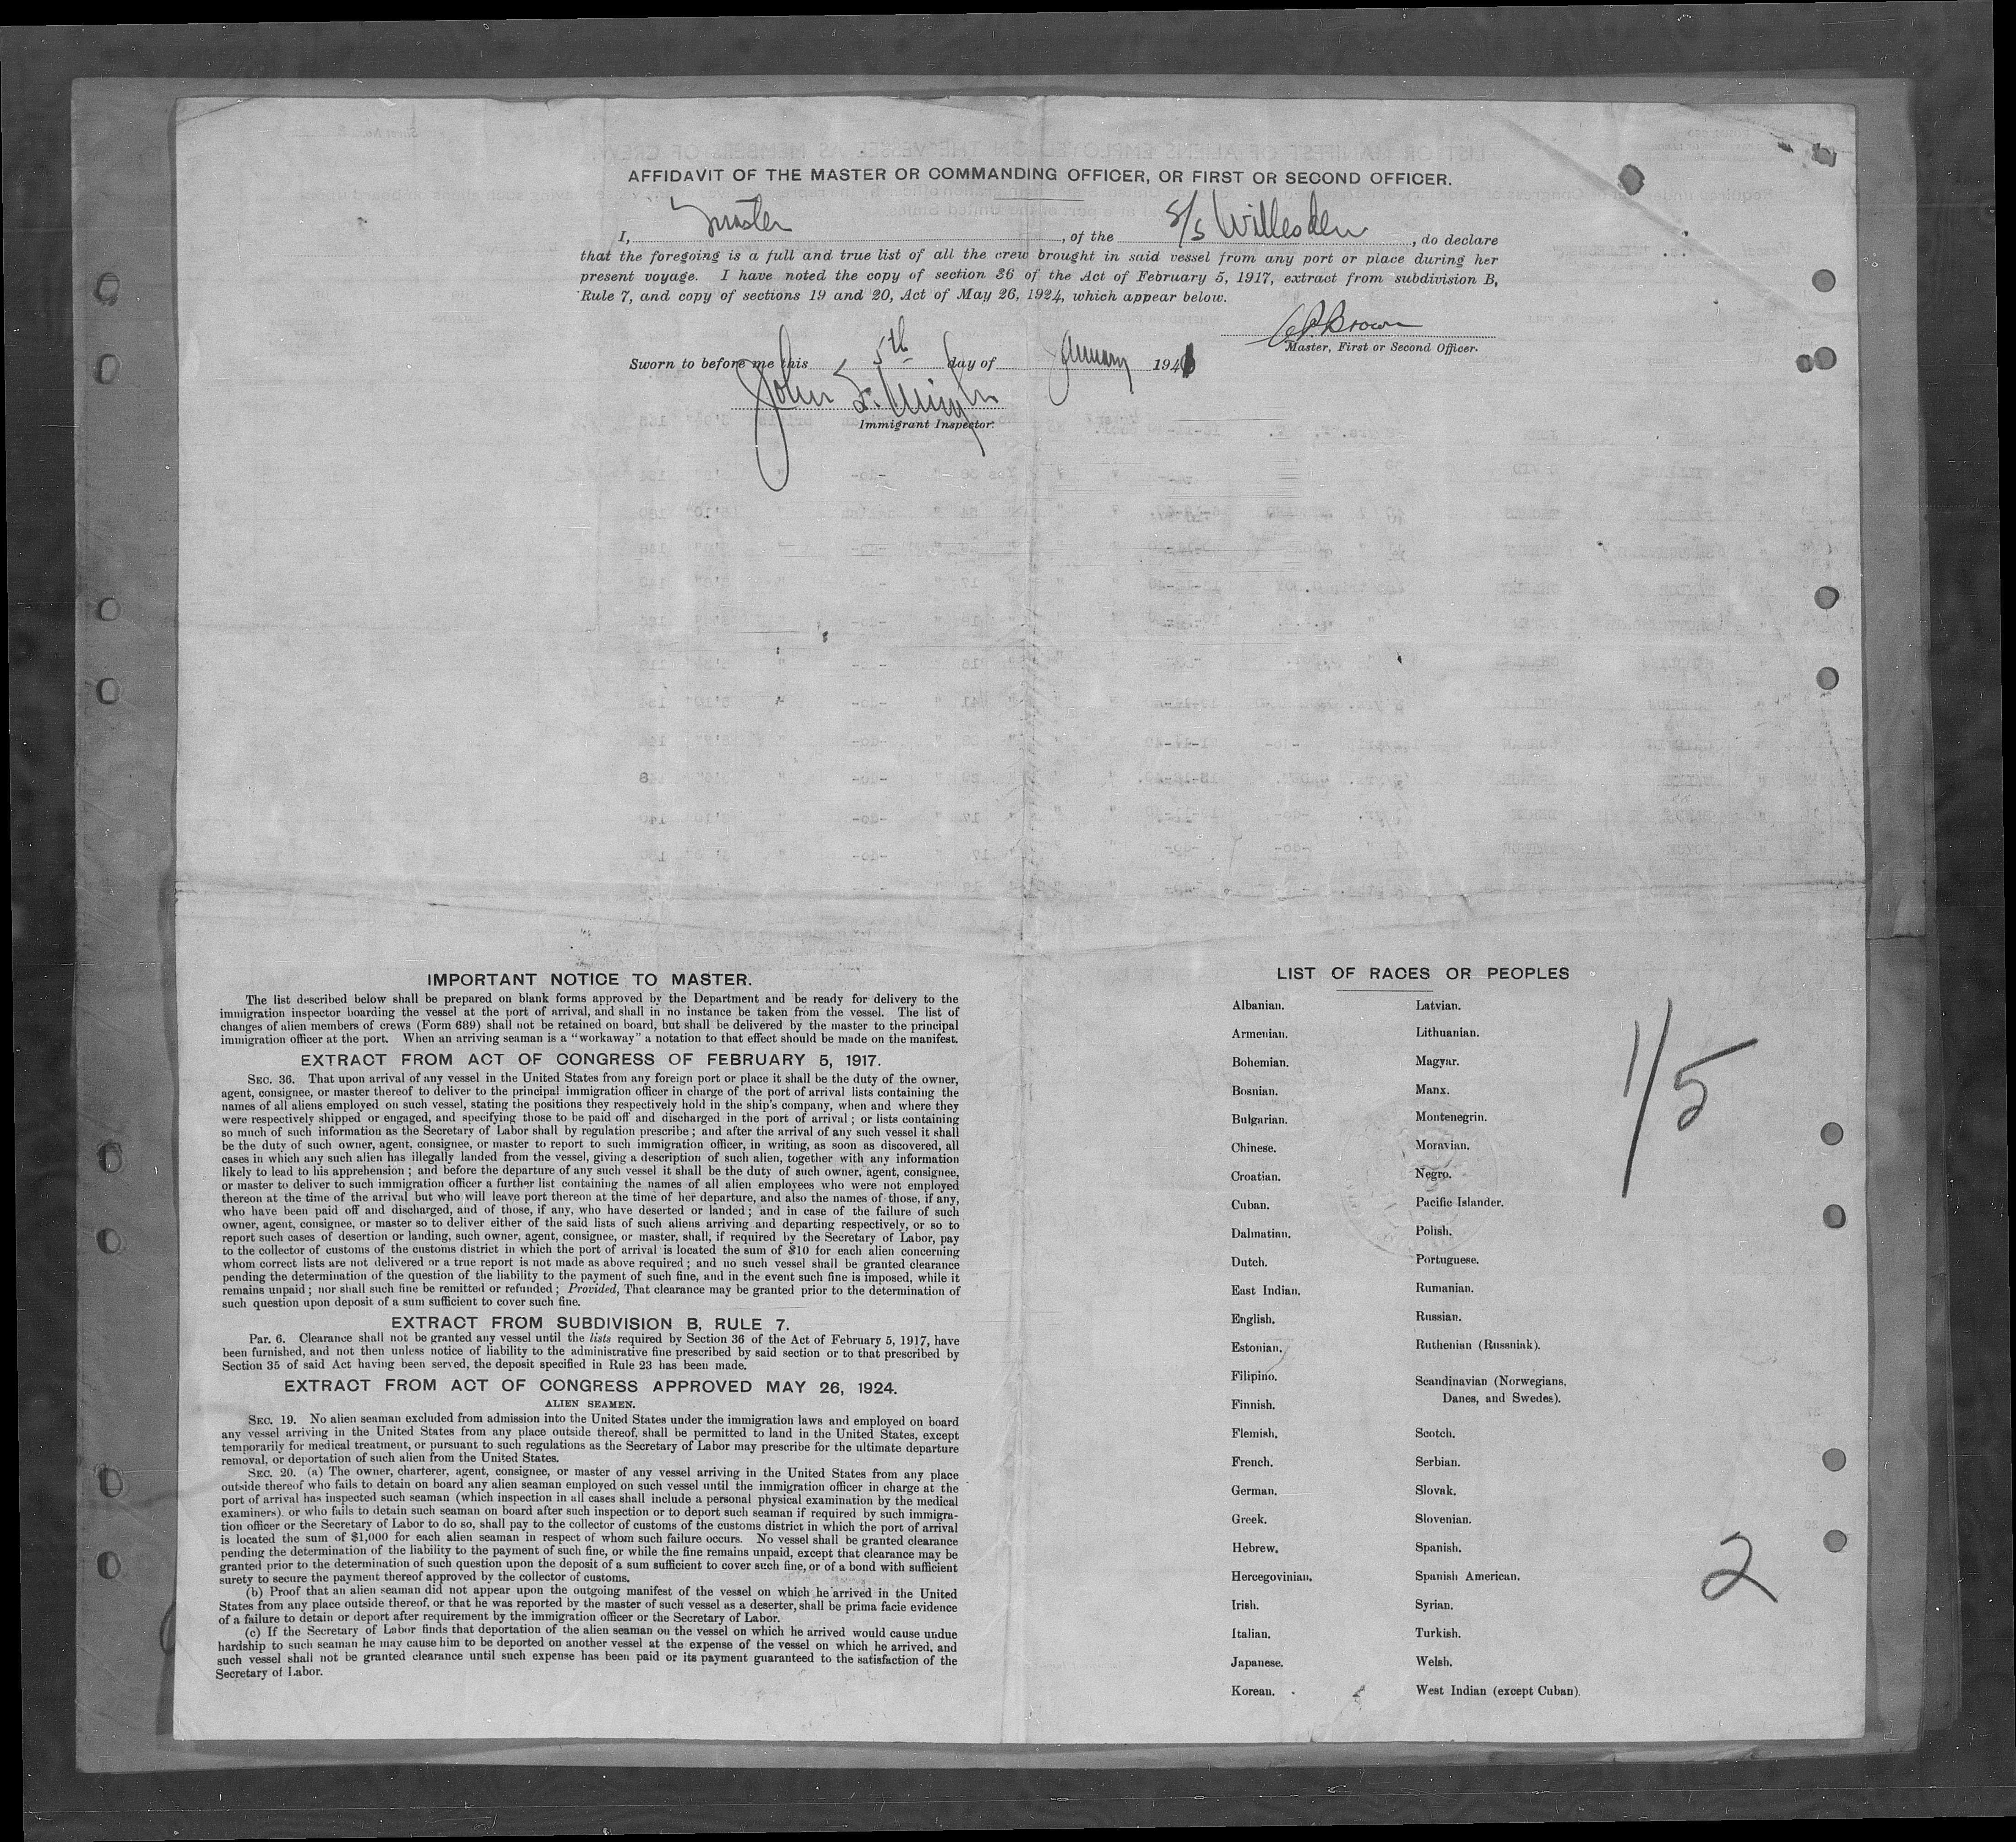 AFFIDAVIT OF THE MASTER OR COMMANDING OFFICER, OR FIRST OR SECOND OFFICER.
I, Master, of the S/S Willesden, do declare
that the foregoing is a full and true list of all the crew brought in said vessel from any port or place during her
present voyage. I have noted the copy of section 36 of the Act of February 5, 1917, extract from subdivision B,
Rule 7, and copy of sections 19 and 20, Act of May 26, 1924, which appear below.
Brown
Master, First or Second Officer.
Sworn to before me this 5th day of January 1941
John
Immigrant Inspector.
IMPORTANT NOTICE TO MASTER.
The list described below shall be prepared on blank forms approved by the Department and be ready for delivery to the
immigration inspector boarding the vessel at the port of arrival, and shall in no instance be taken from the vessel. The list of
changes of alien members of crews (Form 689) shall not be retained on board, but shall be delivered by the master to the principal
immigration officer at the port. When an arriving seaman is a "workaway" a notation to that effect should be made on the manifest.
EXTRACT FROM ACT OF CONGRESS OF FEBRUARY 5, 1917.
SEC. 36. That upon arrival of any vessel in the United States from any foreign port or place it shall be the duty of the owner,
agent, consignee, or master thereof to deliver to the principal immigration officer in charge of the port of arrival lists containing the
names of all aliens employed on such vessel, stating the positions they respectively hold in the ship's company, when and where they
were respectively shipped or engaged, and specifying those to be paid off and discharged in the port of arrival; or lists containing
so much of such information as the Secretary of Labor shall by regulation prescribe; and after the arrival of any such vessel it shall
be the duty of such owner, agent, consignee, or master to report to such immigration officer, in writing, as soon as discovered, all
cases in which any such alien has illegally landed from the vessel, giving a description of such alien, together with any information
likely to lead to his apprehension; and before the departure of any such vessel it shall be the duty of such owner, agent, consignee,
or master to deliver to such immigration officer a further list containing the names of all alien employees who were not employed
thereon at the time of the arrival but who will leave port thereon at the time of her departure, and also the names of those, if any,
who have been paid off and discharged, and of those, if any, who have deserted or landed; and in case of the failure of such
owner, agent, consignee, or master so to deliver either of the said lists of such aliens arriving and departing respectively, or so to
report such cases of desertion or landing, such owner, agent, consignee, or master, shall, if required by the Secretary of Labor, pay
to the collector of customs of the customs district in which the port of arrival is located the sum of $10 for each alien concerning
whom correct lists are not delivered or a true report is not made as above required; and no such vessel shall be granted clearance
pending the determination of the question of the liability to the payment of such fine, and in the event such fine is imposed, while it
remains unpaid; nor shall such fine be remitted or refunded; Provided, That clearance may be granted prior to the determination of
such question upon deposit of a sum sufficient to cover such fine.
EXTRACT FROM SUBDIVISION B, RULE 7.
Par. 6. Clearance shall not be granted any vessel until the lists required by Section 36 of the Act of February 5, 1917, have
been furnished, and not then unless notice of liability to the administrative fine prescribed by said section or to that prescribed by
Section 35 of said Act having been served, the deposit specified in Rule 23 has been made.
EXTRACT FROM ACT OF CONGRESS APPROVED MAY 26, 1924.
ALIEN SEAMEN.
SEC. 19. No alien seaman excluded from admission into the United States under the immigration laws and employed on board
any vessel arriving in the United States from any place outside thereof, shall be permitted to land in the United States, except
temporarily for medical treatment, or pursuant to such regulations as the Secretary of Labor may prescribe for the ultimate departure
removal, or deportation of such alien from the United States.
SEC. 20. (a) The owner, charterer, agent, consignee, or master of any vessel arriving in the United States from any place
outside thereof who fails to detain on board any alien seaman employed on such vessel until the immigration officer in charge at the
port of arrival has inspected such seaman (which inspection in all cases shall include a personal physical examination by the medical
examiners), or who fails to detain such seaman on board after such inspection or to deport such seaman if required by such immigra-
tion officer or the Secretary of Labor to do so, shall pay to the collector of customs of the customs district in which the port of arrival
is located the sum of $1,000 for each alien seaman in respect of whom such failure occurs. No vessel shall be granted clearance
pending the determination of the liability to the payment of such fine, or while the fine remains unpaid, except that clearance may be
granted prior to the determination of such question upon the deposit of a sum sufficient to cover such fine, or of a bond with sufficient
surety to secure the payment thereof approved by the collector of customs.
(b) Proof that an alien seaman did not appear upon the outgoing manifest of the vessel on which he arrived in the United
States from any place outside thereof, or that he was reported by the master of such vessel as a deserter, shall be prima facie evidence
of a failure to detain or deport after requirement by the immigration officer or the Secretary of Labor.
(c) If the Secretary of Labor finds that deportation of the alien seaman on the vessel on which he arrived would cause undue
hardship to such seaman he may cause him to be deported on another vessel at the expense of the vessel on which he arrived, and
such vessel shall not be granted clearance until such expense has been paid or its payment guaranteed to the satisfaction of the
Secretary of Labor.
LIST OF RACES OR PEOPLES
Albanian.
Armenian.
Bohemian.
Bosnian.
Bulgarian.
Chinese.
Croatian.
Cuban.
Dalmatian.
Dutch.
East Indian.
English.
Estonian.
Filipino.
Finnish.
Flemish.
French.
German.
Greek.
Hebrew.
Hercegovinian.
Irish.
Italian.
Japanese.
Korean.
Latvian.
Lithuanian.
Magyar.
Manx.
Montenegrin.
Moravian.
Negro.
Pacific Islander.
Polish.
Portuguese.
Rumanian.
Russian.
Ruthenian (Russniak).
Scandinavian (Norwegians,
Danes, and Swedes).
Scotch.
Serbian.
Slovak.
Slovenian.
Spanish.
Spanish American.
Syrian.
Turkish.
Welsh.
West Indian (except Cuban).
1/5
2